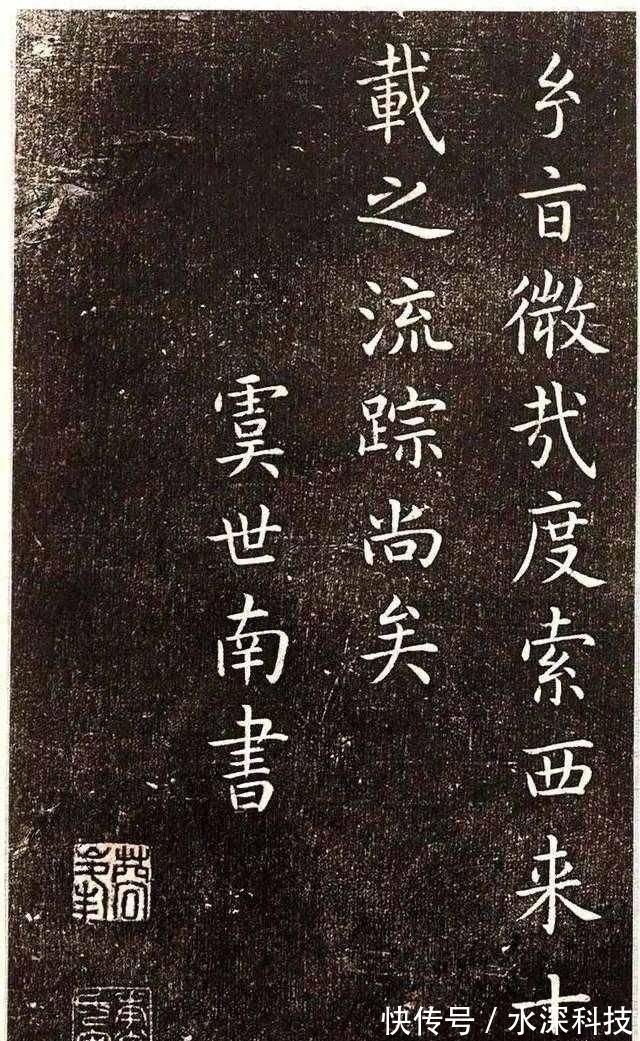 玄㫖微哉度索西来
載之流踪尚矣
虞世南書
快传号 / 水深科技